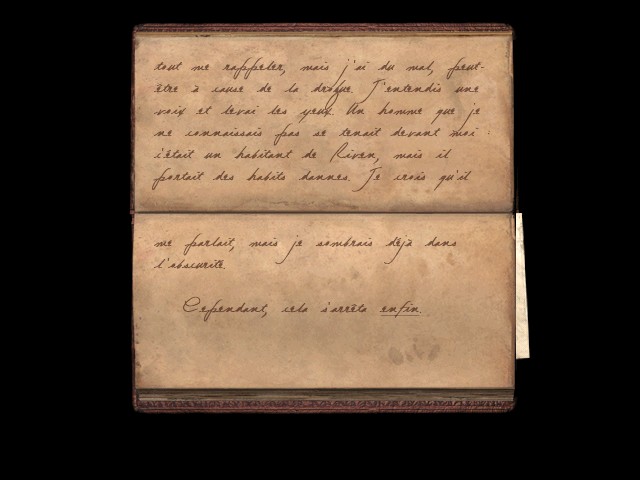 tout me rappeler, mais j'ai du mal, peut-
être à cause de la drogue. J'entendis une
voix et levai les yeux. Un homme que je
ne connaissais pas se tenait devant moi :
c'était un habitant de Riven, mais il
portait des habits dannes. Je crois qu'il
me parlait, mais je sombrais déjà dans
l'obscurité.
Cependant, cela s'arrêta enfin.